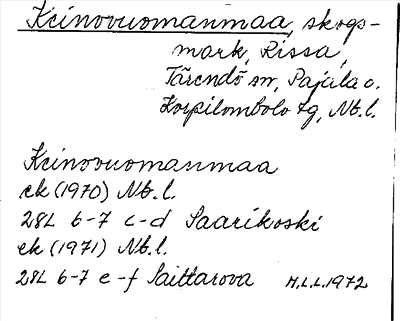 Keinovuomanmaa, skogs-
mark, Rissa,
Tärendö sn, Pajala o.
Korpilombolo tg, Nb.l.
Keinovuomanmaa
ek (1970) Nb.l.
28L 6-7 c-d Saarikoski
ek (1971) Nb.l.
28L 6-7 e-f Saittarova H.L.L. 1972